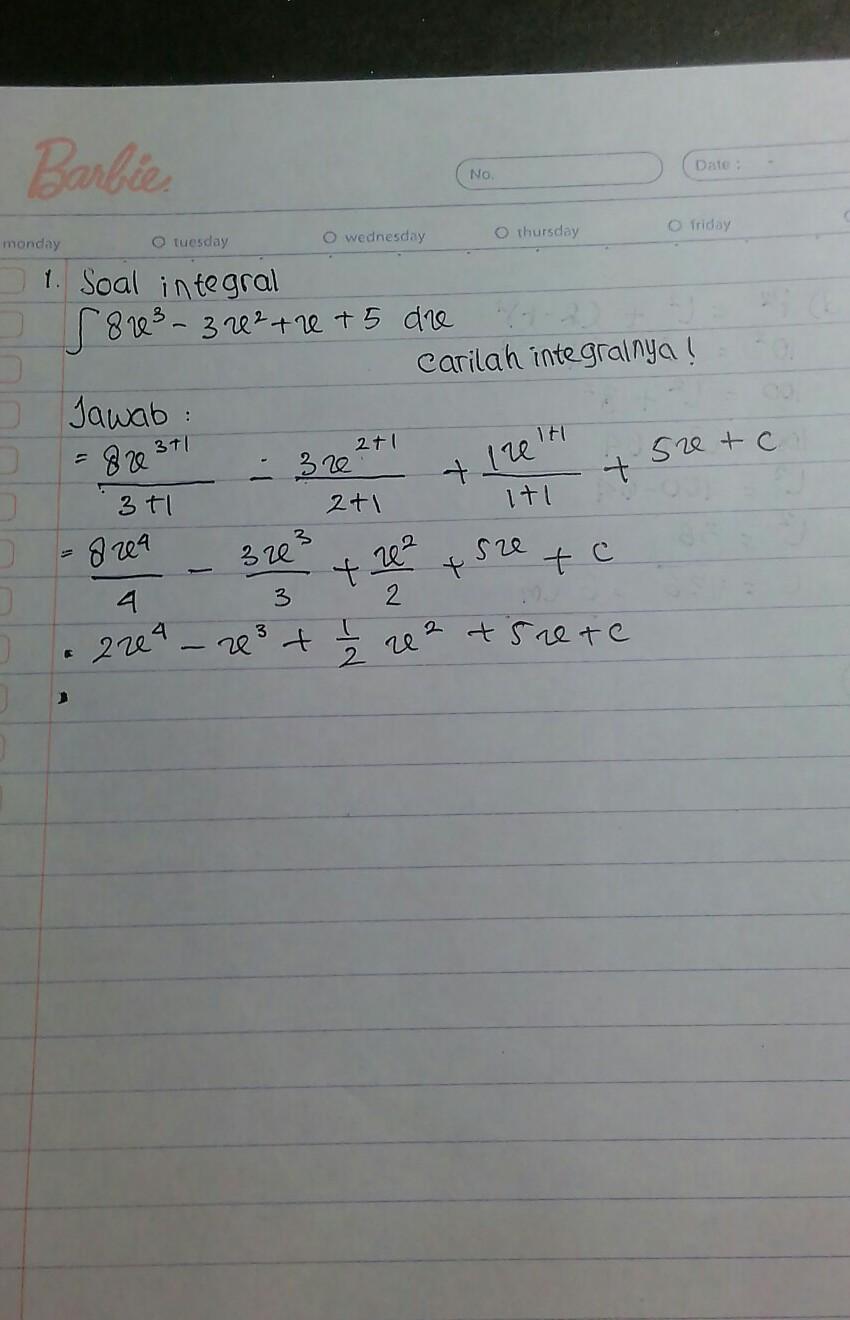 Barbie
No. Date :
monday tuesday wednesday thursday friday
1. Soal integral
∫ 8x³ - 3x² + x + 5 dx
Carilah integralnya !
Jawab :
= 8x³⁺¹/3+1 - 3x²⁺¹/2+1 + 1x¹⁺¹/1+1 + 5x + c
= 8x⁴/4 - 3x³/3 + x²/2 + 5x + c
= 2x⁴ - x³ + 1/2 x² + 5x + c